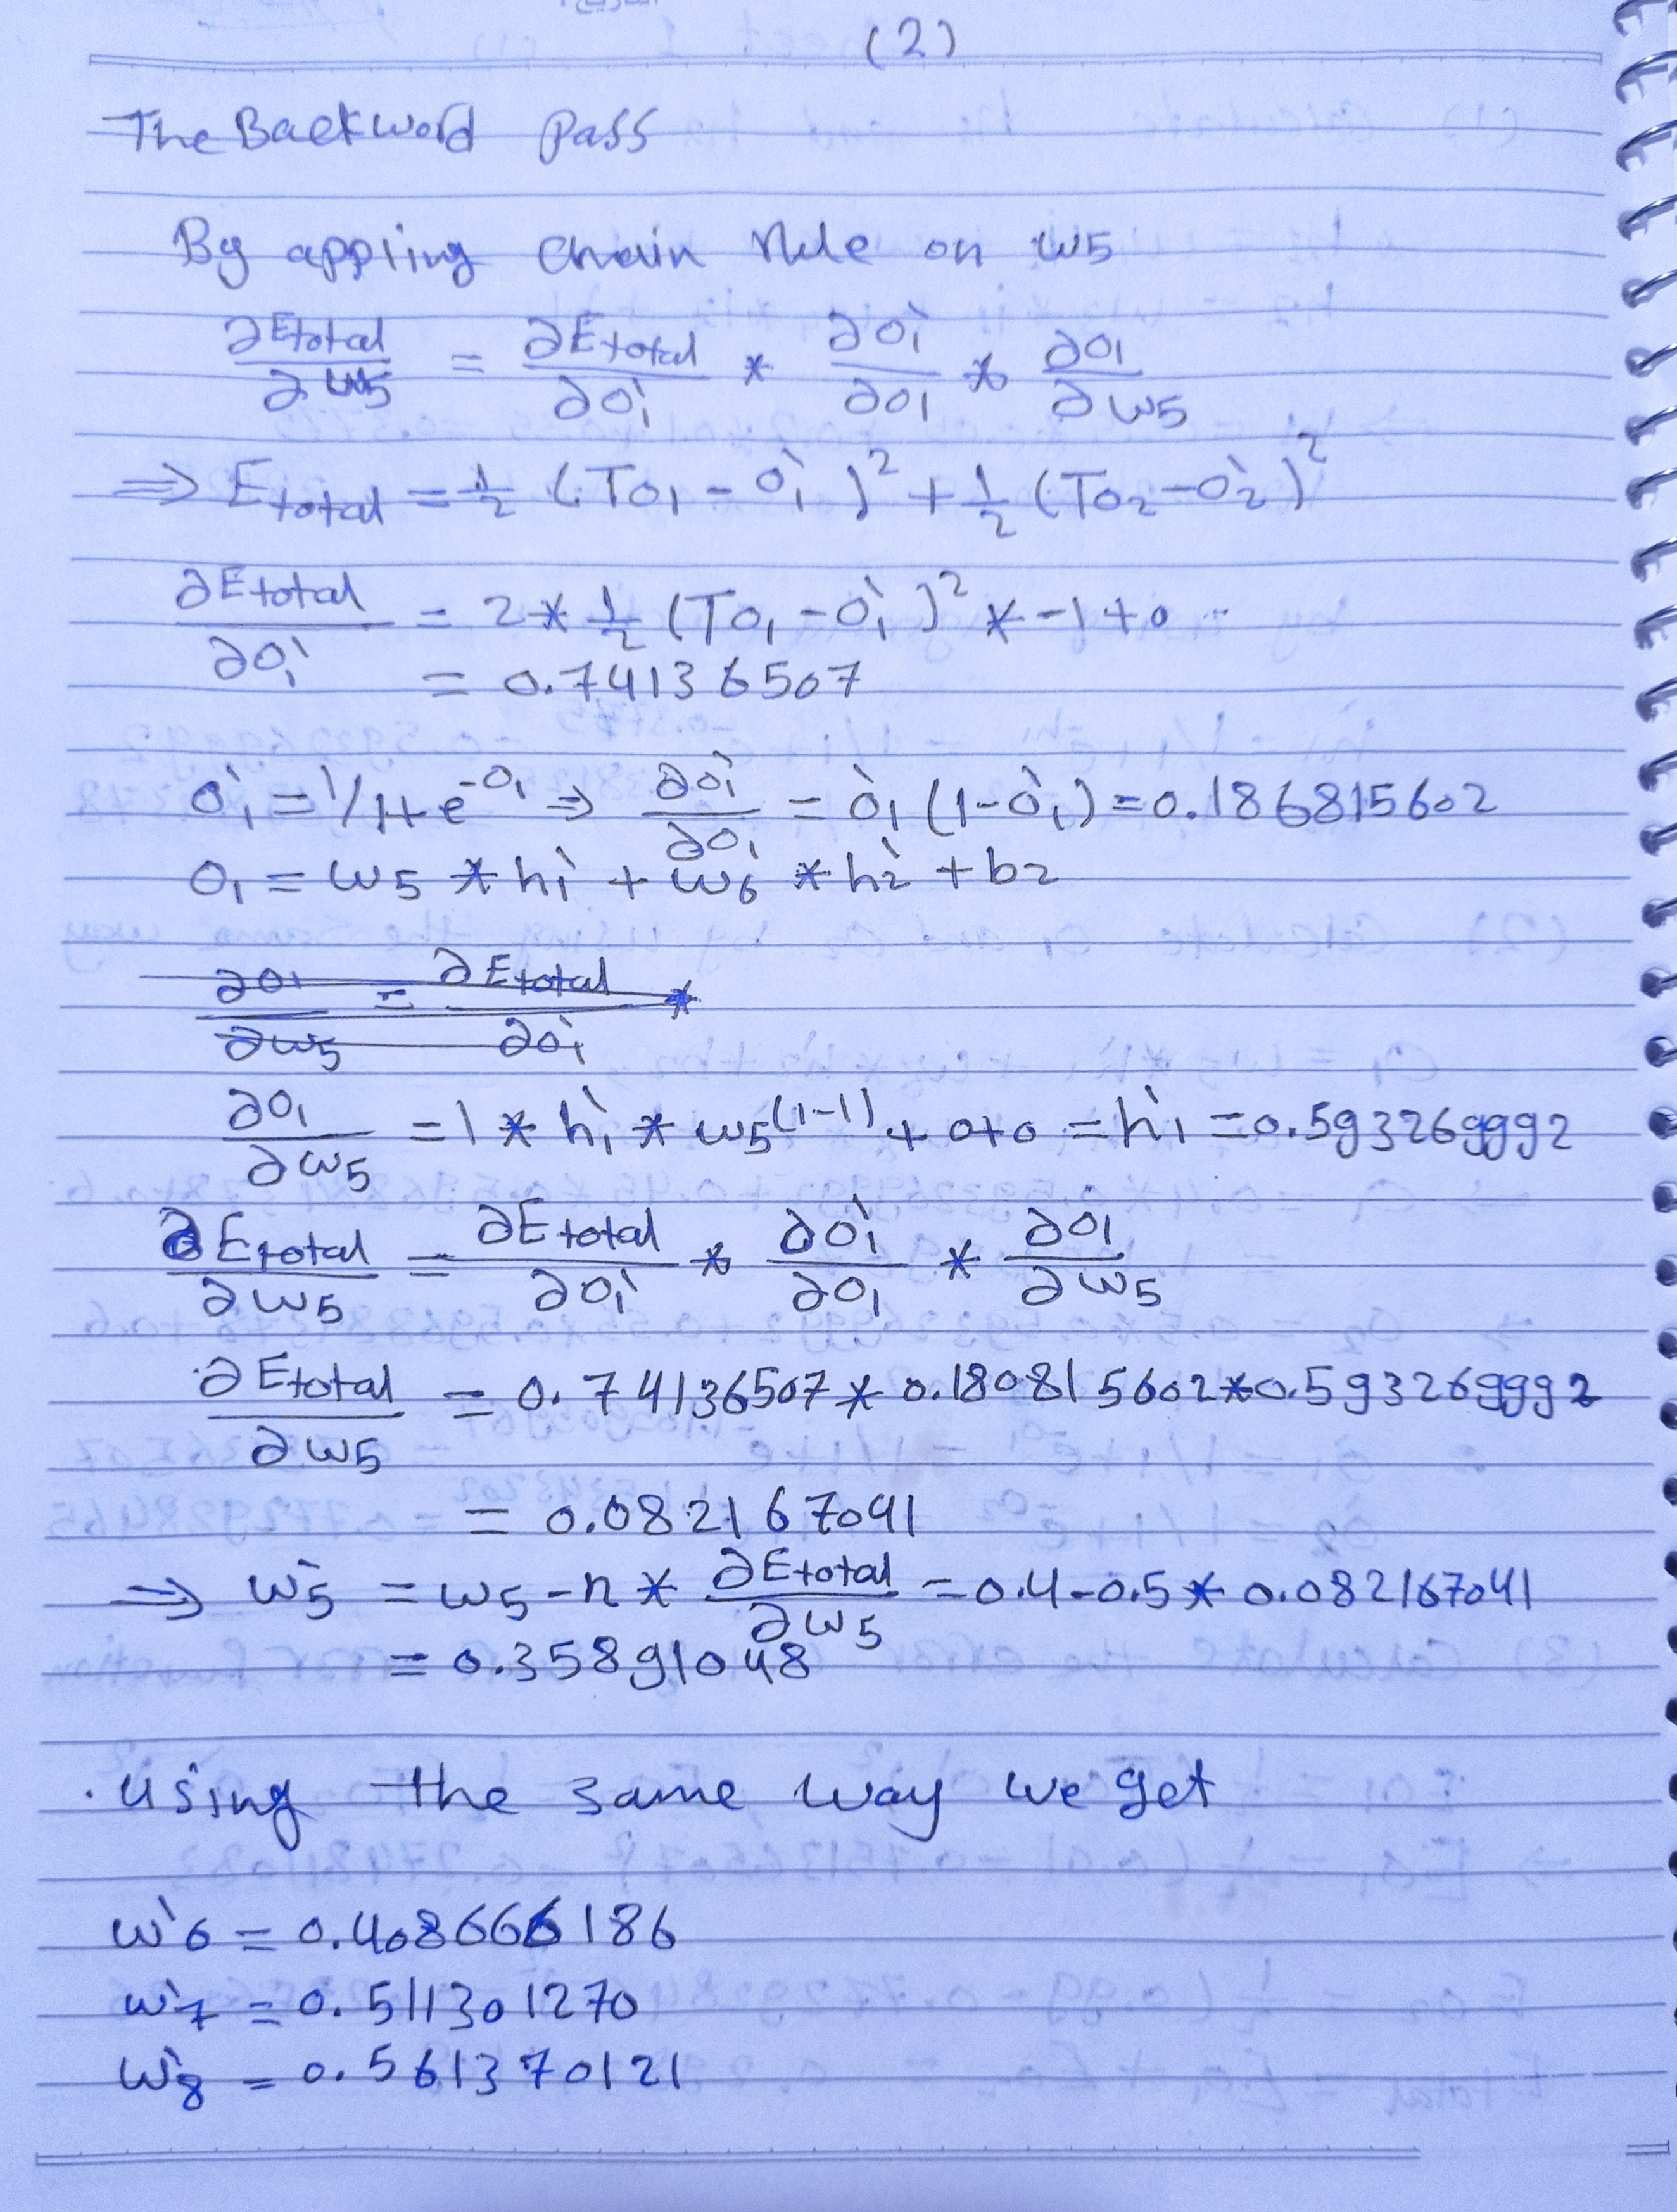 (2)
The Backword Pass
By appling chain rule on w5
∂Etotal/∂w5 = ∂Etotal/∂o1` * ∂o1`/∂o1 * ∂o1/∂w5
⇒ Etotal = 1/2 (To1 - o1`)² + 1/2 (To2 - o2`)²
∂Etotal/∂o1` = 2 * 1/2 (To1 - o1`)² * -1 + 0
= 0.74136507
o1` = 1/1+e^-o1 ⇒ ∂o1`/∂o1 = o1` (1-o1`) = 0.186815602
o1 = w5 * h1` + w6 * h2` + b2
∂o1/∂w5 = ∂Etotal/∂o1` *
∂o1/∂w5 = 1 * h1` * w5^(1-1) + 0+0 = h1` = 0.593269992
∂Etotal/∂w5 = ∂Etotal/∂o1` * ∂o1`/∂o1 * ∂o1/∂w5
∂Etotal/∂w5 = 0.74136507 * 0.180815602 * 0.593269992
= 0.082167041
⇒ w5` = w5 - n * ∂Etotal/∂w5 = 0.4 - 0.5 * 0.082167041
= 0.35891048
. using the same way we get
w`6 = 0.408666186
w`7 = 0.511301270
w`8 = 0.561370121